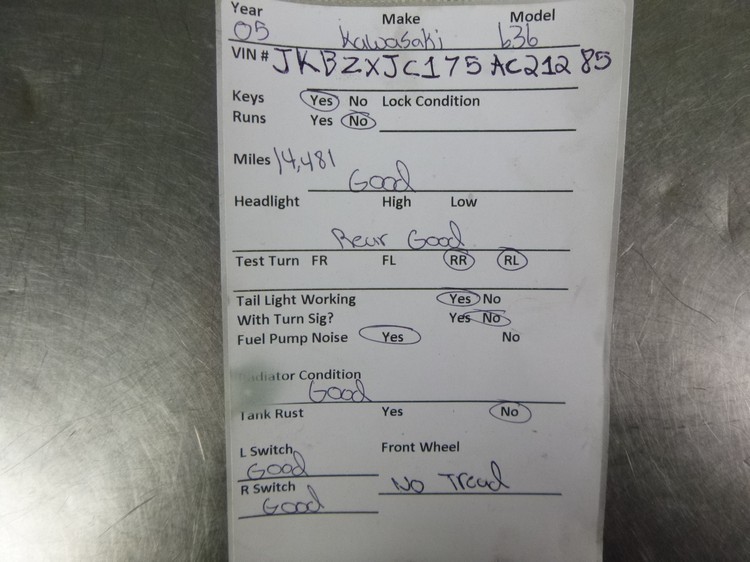 Year Make Model
05 Kawasaki 636
VIN # JKBZXJC175AC21285
Keys Yes No Lock Condition
Runs Yes No
Miles 14,481
Good
Headlight High Low
Rear Good
Test Turn FR FL RR RL
Tail Light Working Yes No
With Turn Sig? Yes No
Fuel Pump Noise Yes No
Radiator Condition
Good
Tank Rust Yes No
L Switch Front Wheel
Good
R Switch No Tread
Good